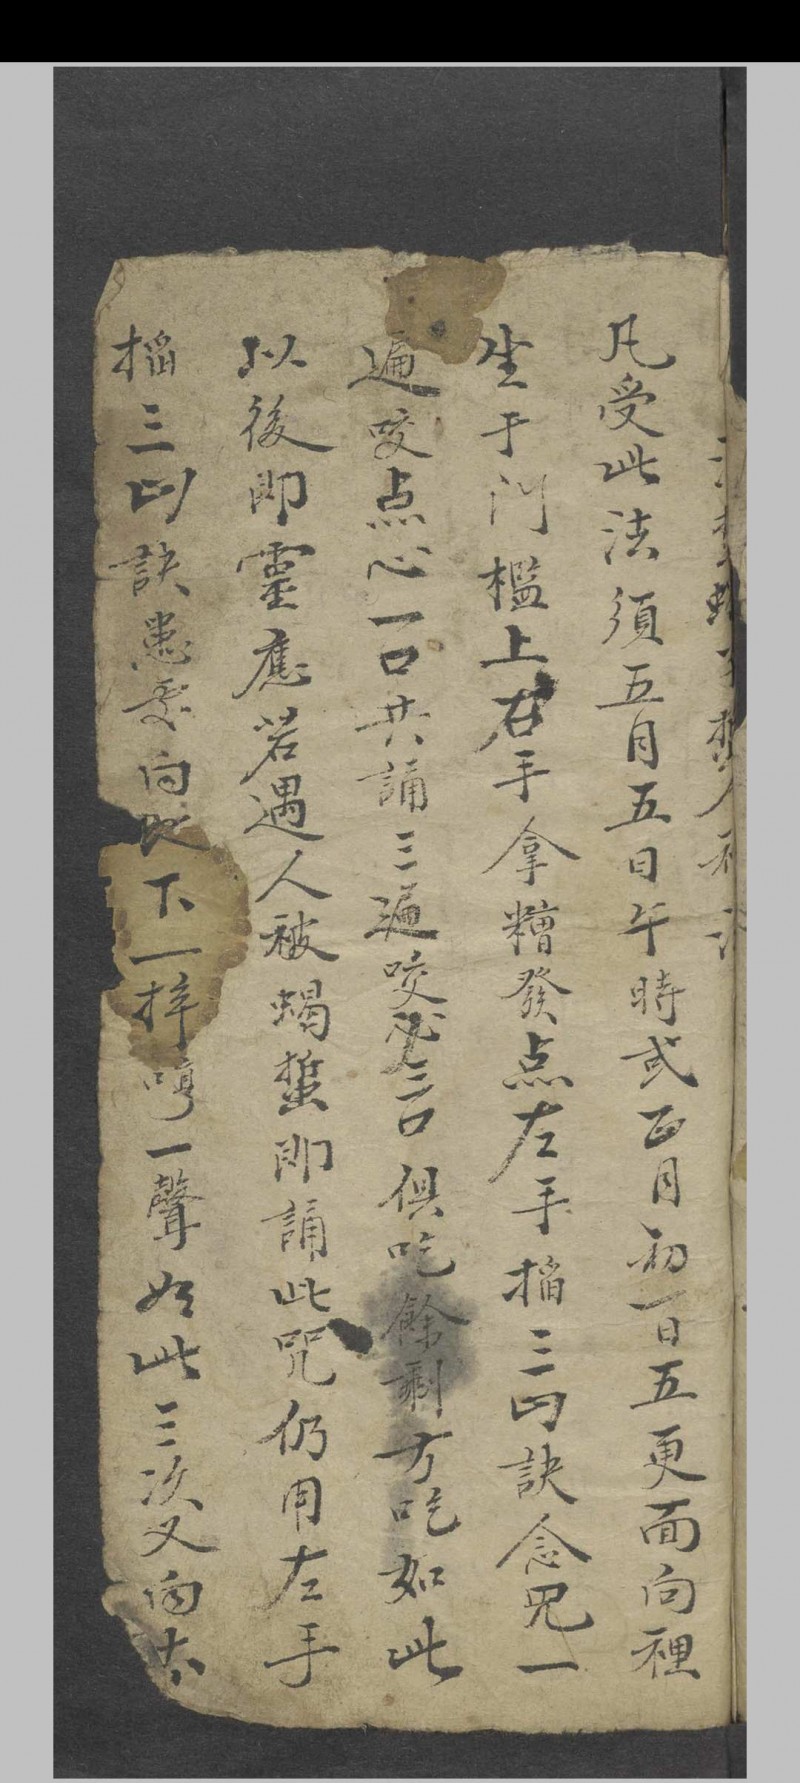 凡受此法須五月五日午時或正月初一日五更面向裡
坐于門檻上右手拿糟發点左手搯三山訣念咒一
遍咬点心一口共誦三遍咬三口俱吃餘剩方吃如此
以後即靈應若遇人被蝎蜇即誦此咒仍用左手
搯三山訣患處向地下一摔哼一聲如此三次又向太